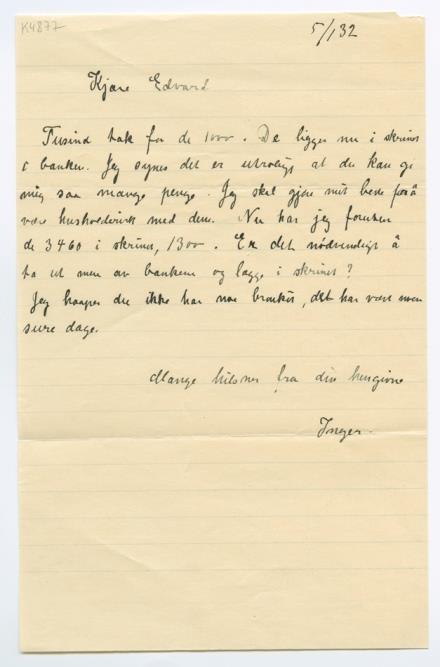 K4877
5/1 32
Kjære Edvard
Tusind tak for de 1000. De ligger nu i skrinet
i banken. Jeg synes det er utrolig at du kan gi
mig saa mange penge. Jeg skal gjøre mit beste for å
være husholderisk med dem. Nu har jeg foruten
de 3460 i skrinet, 1300. Er det nødvendigt å
ta ut mer av banken og lægge i skrinet?
Jeg haaper du ikke har noe bronkit, det har vært noen
sure dage.
Mange hilsner fra din hengivne
Inger